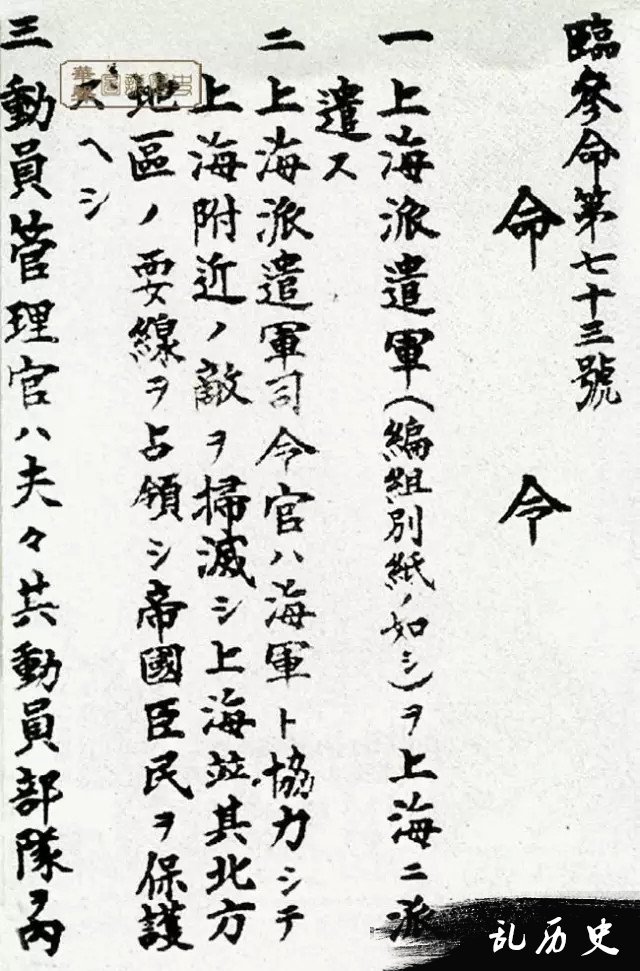 臨參命第七十三號
命令
一 上海派遣軍(編組別紙ノ如シ)ヲ上海ニ派
遣ス
二 上海派遣軍司令官ハ海軍ト協力シテ
上海附近ノ敵ヲ掃滅シ上海竝其北方
地區ノ要線ヲ占領シ帝國臣民ヲ保護
スヘシ
三 動員管理官ハ夫々其動員部隊ヲ內
乱历史